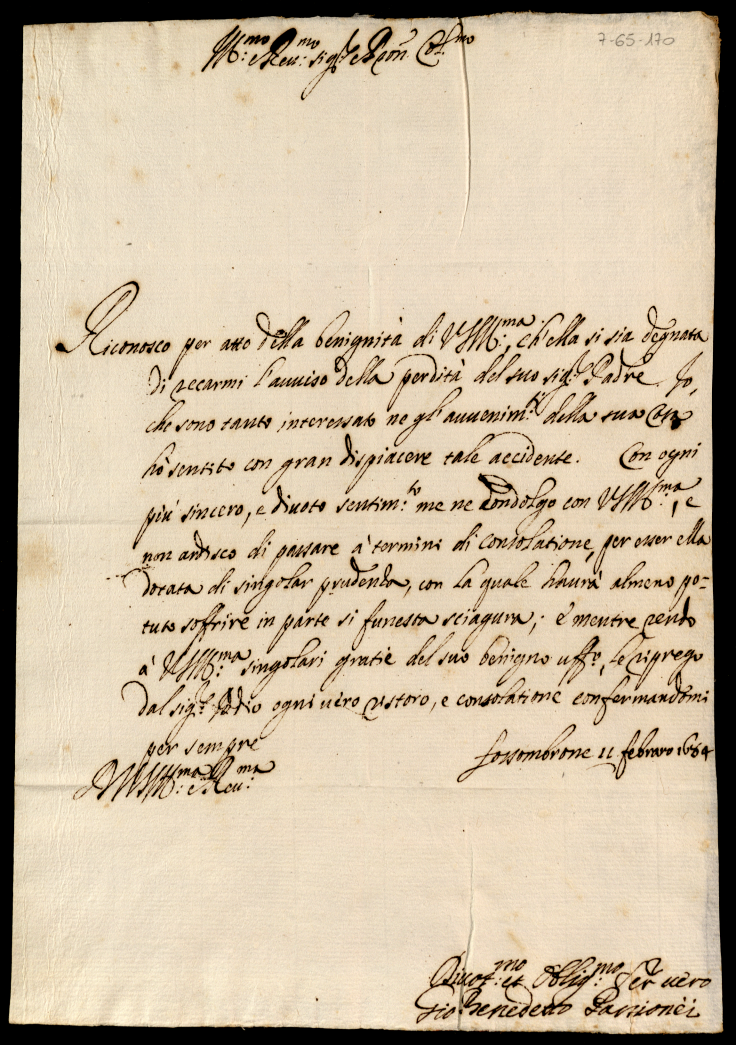 7-65-170
Ill:mo e Reu:mo sig:r e Pron Col:mo
Riconosco per atto della benignità di VSIll:ma, ch'ella si sia degnata
di recarmi l'auuiso della perdità del suo sig:r Padre. Io,
che sono tanto interessato ne gl'auuenim:ti della sua Casa
hò sentito con gran dispiacere tale accidente. Con ogni
più sincero, e diuoto sentim:to me ne condolgo con VSIll:ma, e
non ardisco di passare à termini di consolatione, per esser ella
dotata di singolar prudenza, con la quale haurà almeno po-
tuto soffrire in parte si funesta sciagura; e mentre rendo
à VSIll:ma singolari gratie del suo benigno uff:o, le riprego
dal sig:r Iddio ogni uero ristoro, e consolatione confermandomi
per sempre
Fossombrone 11 febraro 1684
D VSIll:ma e Reu:ma
Diuot:mo et Oblig:mo Ser:r uero
Gio Benedetto Passionèi